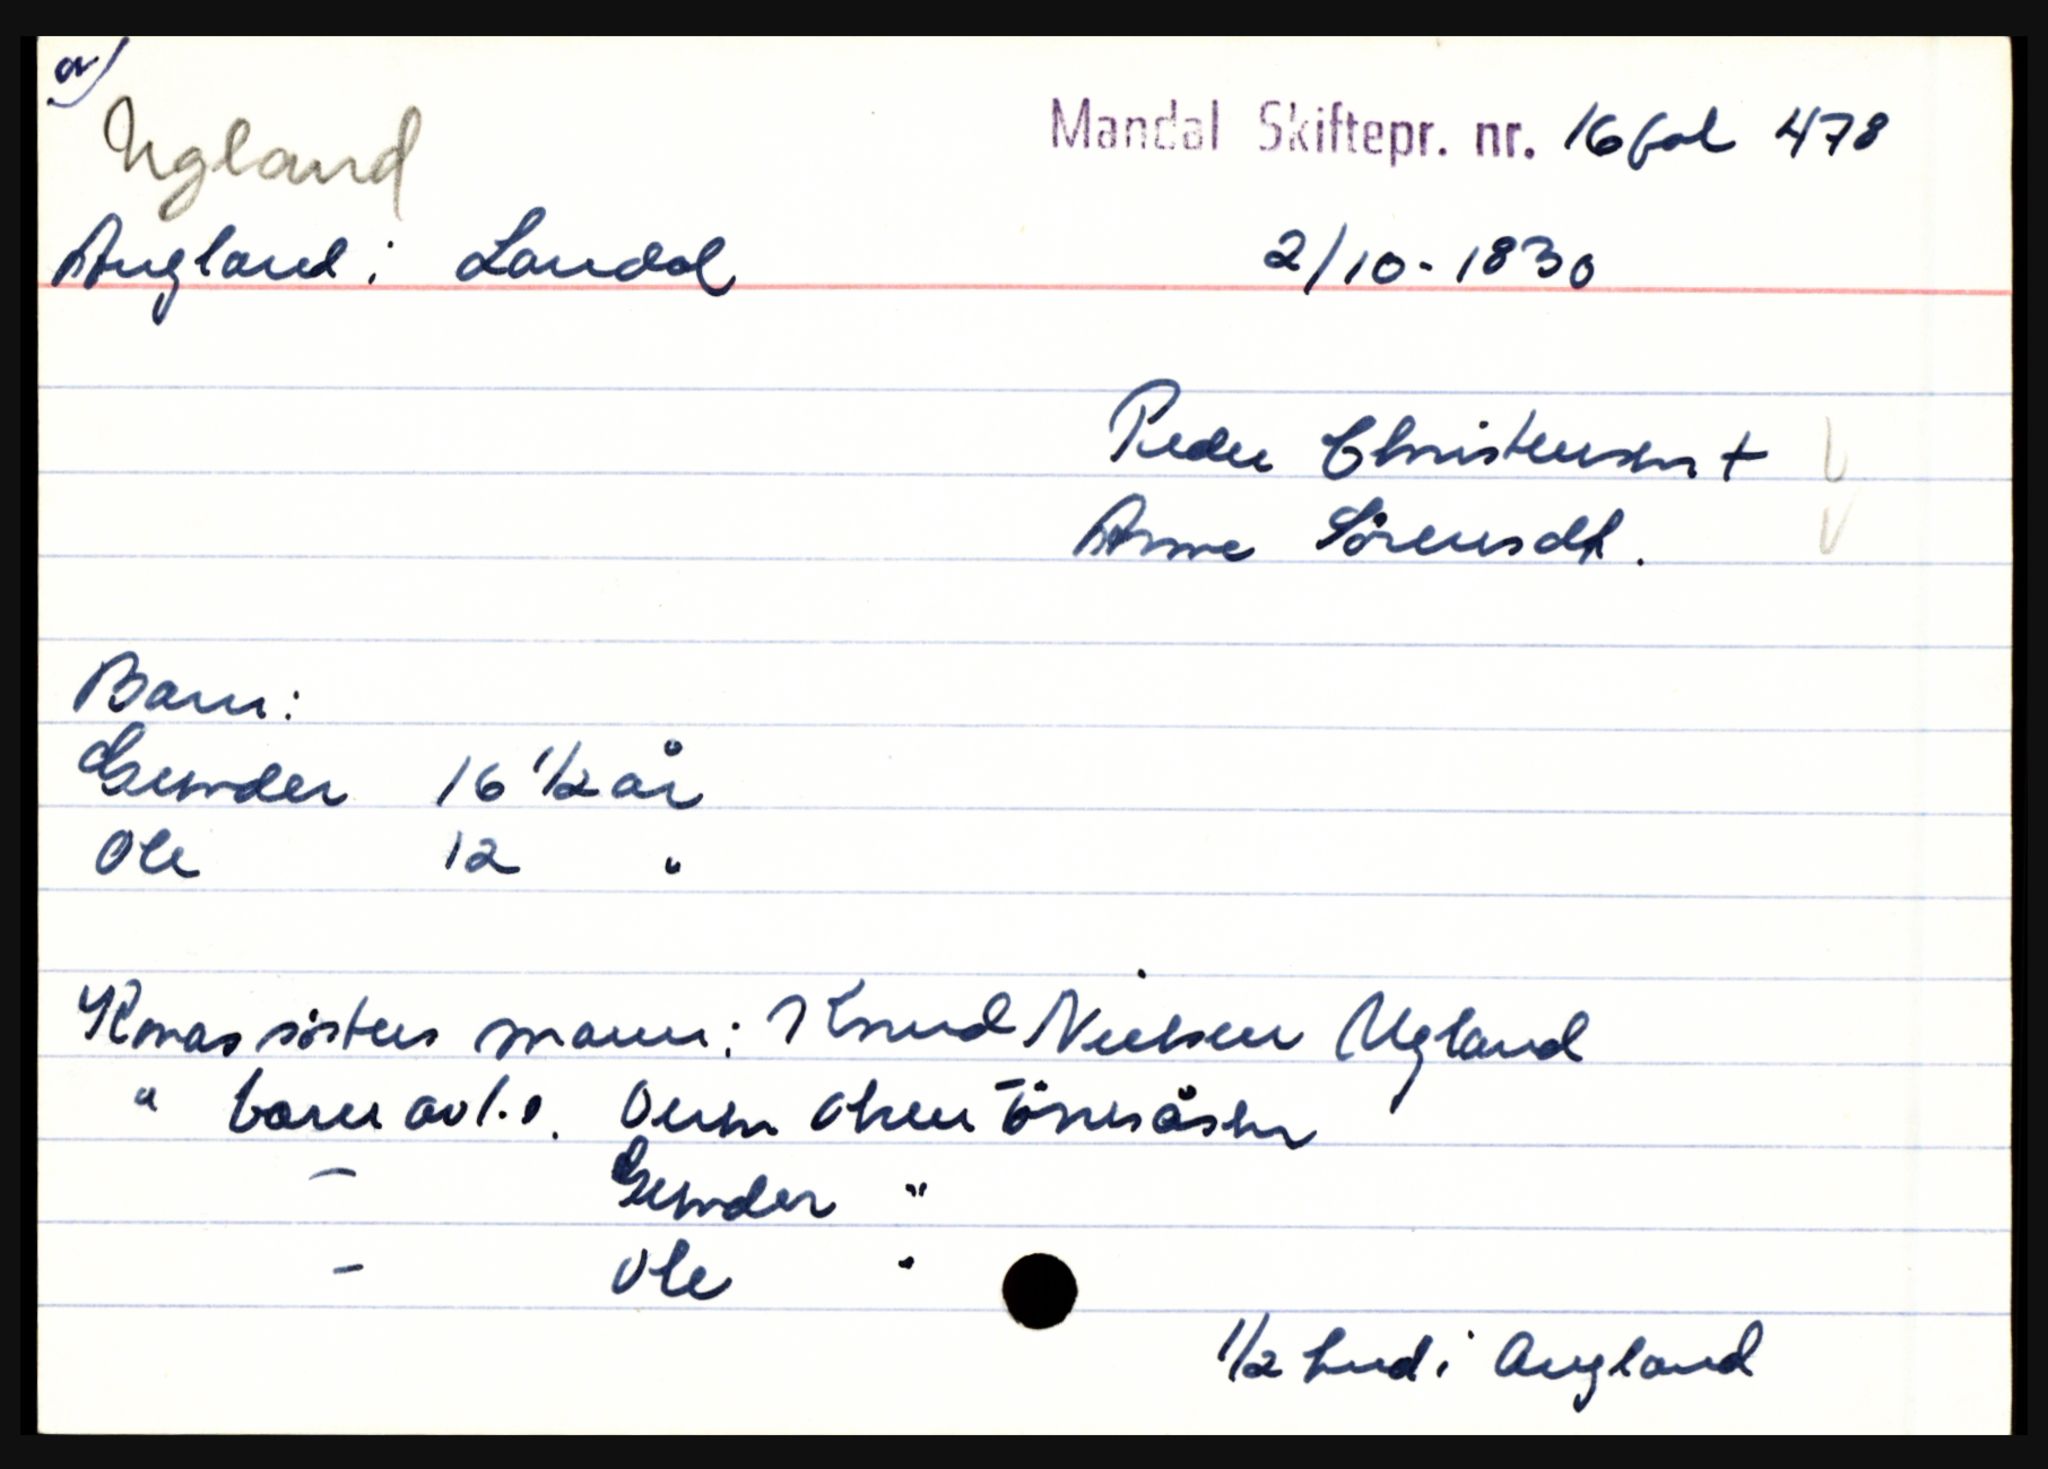 a)
Ugland
Mandal Skiftepr. nr. 16 fol 478
Augland i Laudal
2/10-1830
Peder Christensen +
Anne Sörensdt.
Barn:
Gunder 16 1/2 år
Ole 12 "
Konas sösters mann: Knud Nielsen Ugland
" barn av l.s. Ouen Olsen Tönnesåsen
- Gunder "
- Ole "
1/2 hud i Augland